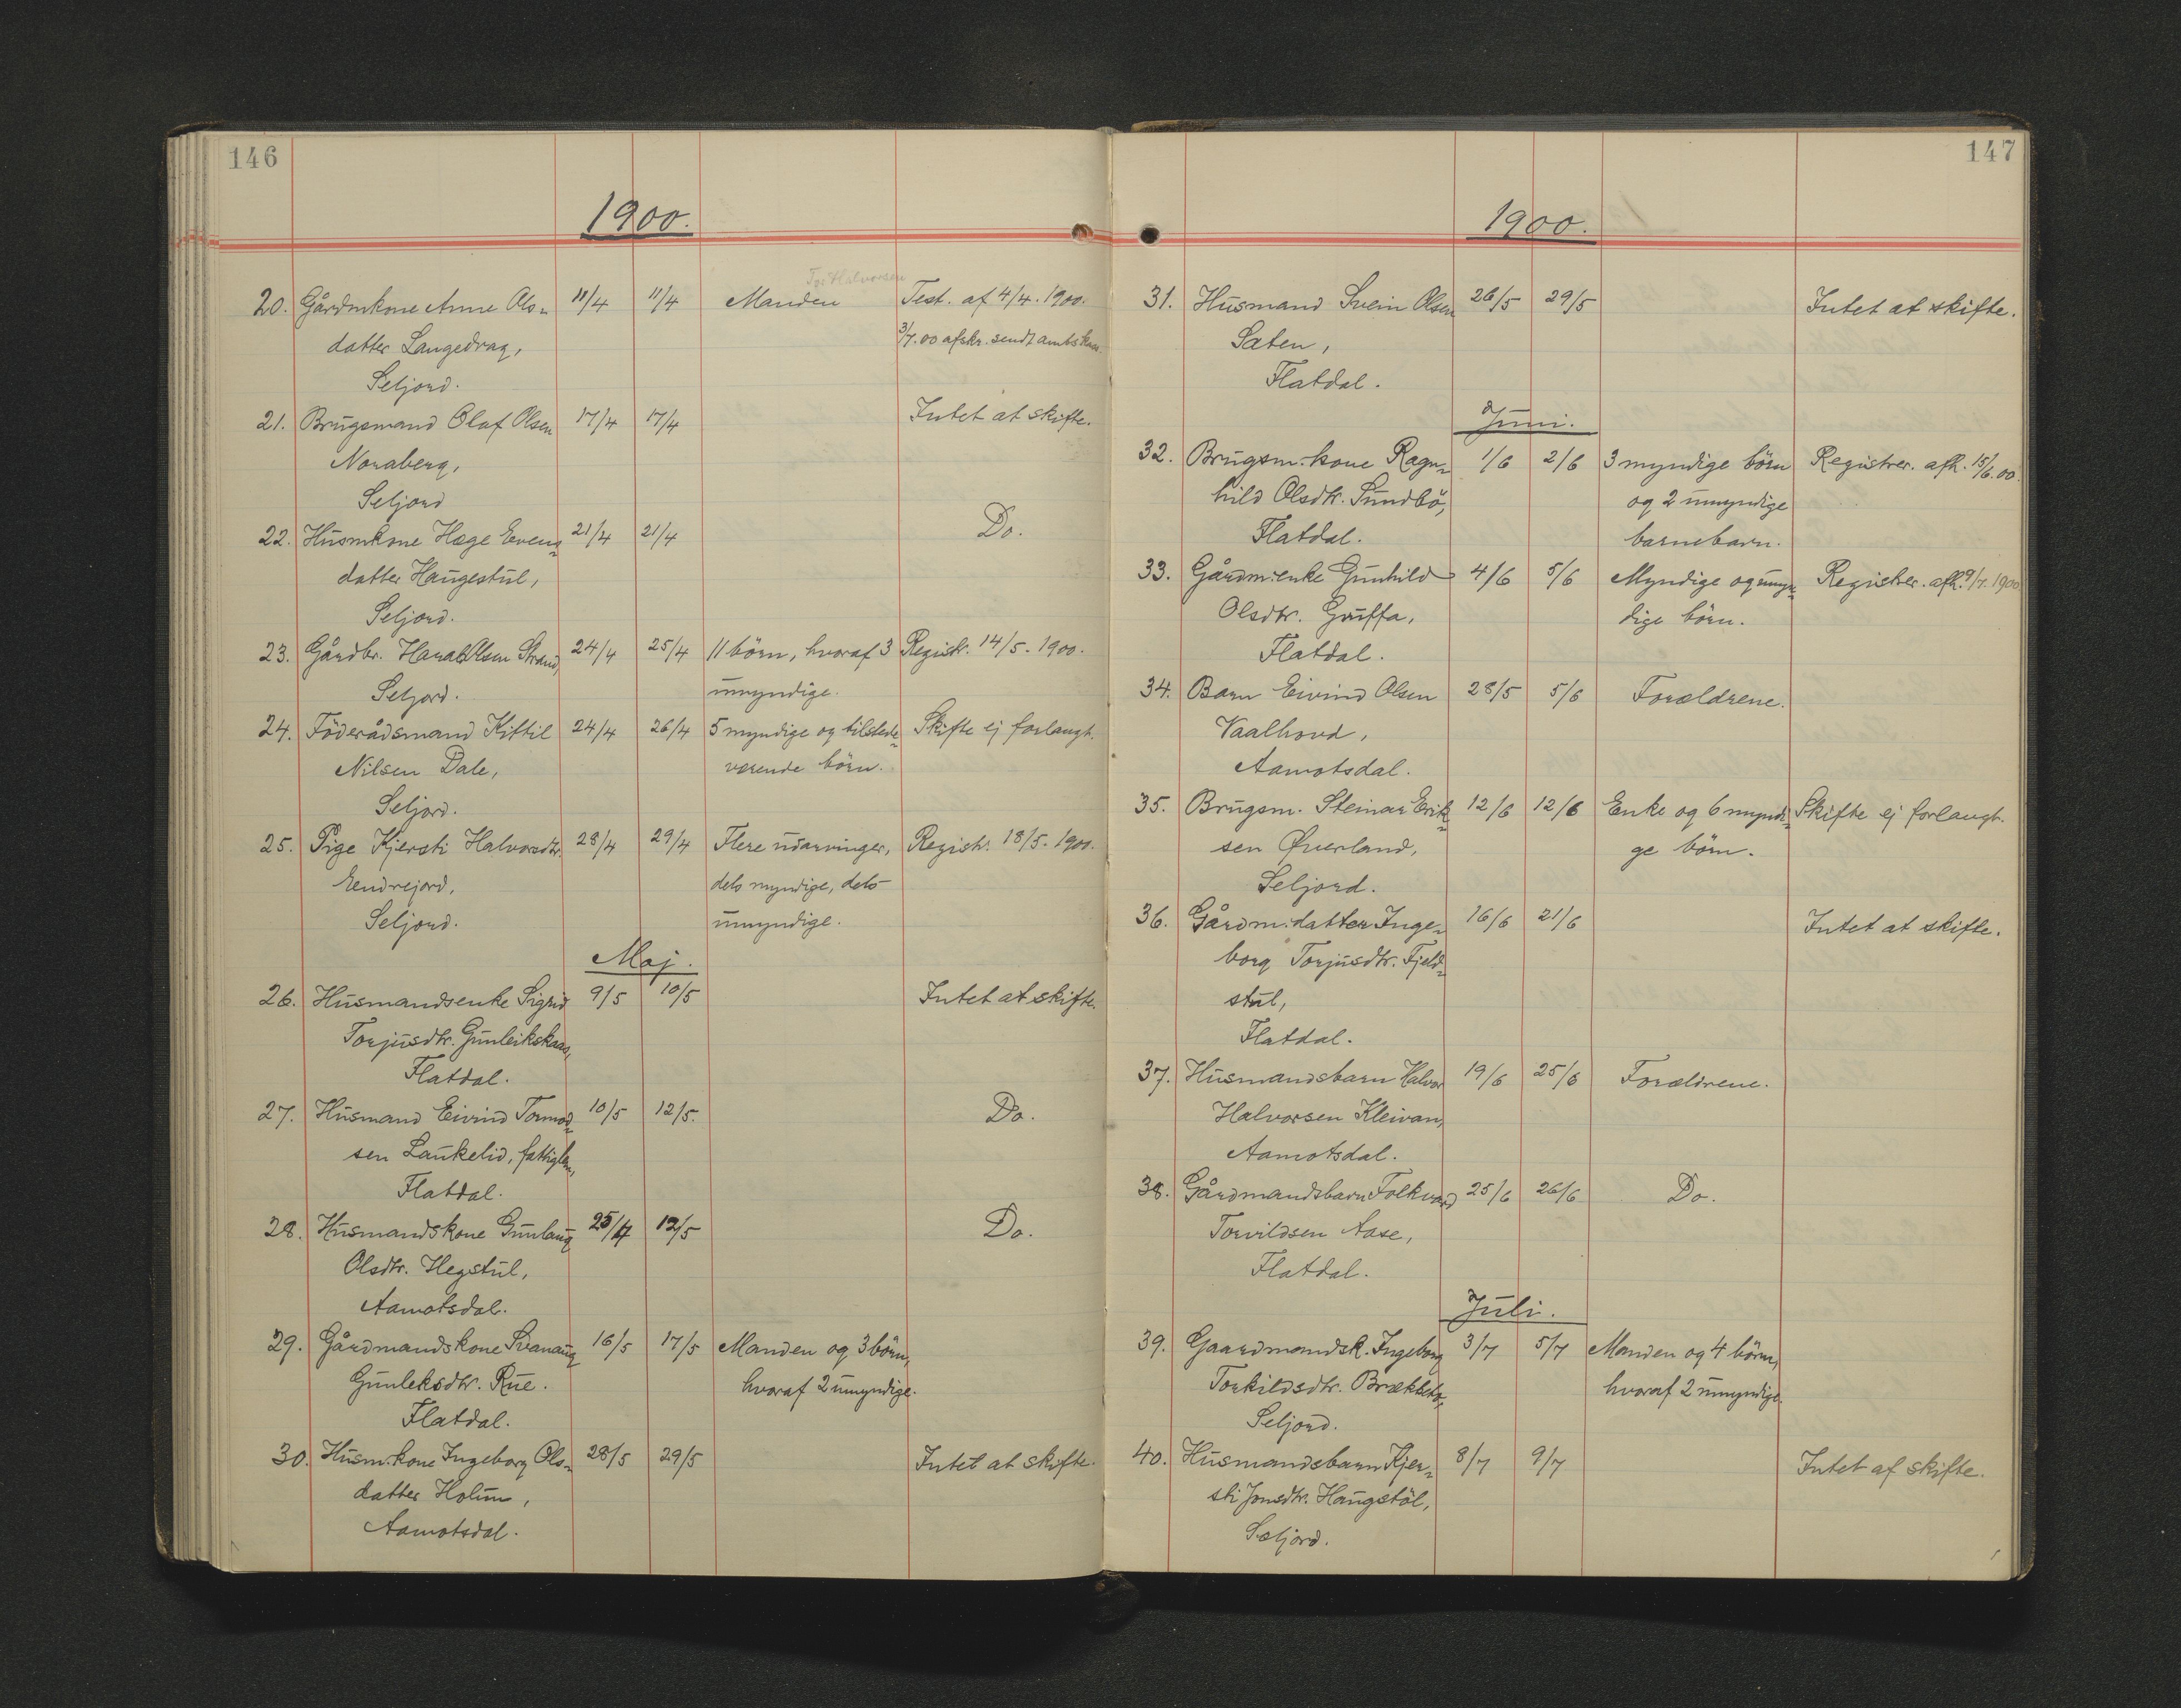 146
1900.
20. Gårdmkone Anne Ols- 11/4 11/4 Manden Test. af 4/4. 1900.
datter Langedrag, 3/7.00 afskr. sendt amtskass.
Seljord.
21. Brugsmand Olaf Olsen 17/4 17/4 Intet at skifte.
Noraberg,
Seljord
22. Husmkone Hæge Evens- 21/4 21/4 Do.
datter Haugestul,
Seljord.
23. Gårdbr. Harald Olsen Strand, 24/4 25/4 11 börn, hvoraf 3 Registr. 14/5. 1900.
Seljord. umyndige.
24. Föderådsmand Kittil 24/4 26/4 5 myndige og tilstede- Skifte ej forlangt.
Nilsen Dale, værende börn.
Seljord.
25. Pige Kjersti Halvorsdtr. 28/4 29/4 Flere udarvinger, Registr. 18/5. 1900.
Eendrejord, dels myndige, dels
Seljord. umyndige.
Maj.
26. Husmandsenke Sigrid 9/5 10/5 Intet at skifte.
Torjusdtr. Gunleikskaas,
Flatdal.
27. Husmand Eivind Tormod- 10/5 12/5. Do.
sen Laukelid, fattiglem,
Flatdal.
28. Husmandskone Gunlaug 25/4 12/5 Do.
Olsdtr. Hegstul,
Aamotsdal.
29. Gårdmandskone Svanaug 16/5 17/5 Manden og 3 börn,
Gunleksdtr. Rue. hvoraf 2 umyndige.
Flatdal.
30. Husm.kone Ingeborg Ols- 28/5 29/5 Intet at skifte.
datter Holum,
Aamotsdal.
147
1900.
31. Husmand Svein Olsen 26/5 29/5 Intet at skifte.
Saten,
Flatdal.
Juni.
32. Brugsm.kone Ragn- 1/6 2/6 3 myndige börn Registrer. afh. 15/6.00.
hild Olsdtr. Sundbö, og 2 umyndige
Flatdal. barnebarn.
33. Gårdm.enke Gunhild 4/6 5/6 Myndige og umyn- Registrer. afh. 9/7. 1900
Olsdtr. Guffa, dige börn.
Flatdal.
34. Barn Eivind Olsen 28/5 5/6 Forældrene.
Vaalhovd,
Aamotsdal.
35. Brugsm. Steinar Erik- 12/6 12/6 Enke og 6 myndi- Skifte ej forlangt.
sen Øverland, ge börn.
Seljord.
36. Gårdm.datter Inge- 16/6 21/6 Intet at skifte.
borg Torjusdtr. Fjeld-
stul,
Flatdal.
37. Husmandsbarn Halvor 19/6 25/6 Forældrene.
Halvorsen Kleivan,
Aamotsdal.
38. Gårdmandsbarn Folkvard 25/6 26/6 Do.
Torvildsen Aase,
Flatdal.
Juli.
39. Gaardmandsk. Ingeborg 3/7 5/7 Manden og 4 börn,
Torkildsdtr. hvoraf 2 umyndige.
Seljord.
40. Husmandsbarn Kjer- 8/7 9/7 Intet af skifte.
sti Jonsdtr. Haugstöl,
Seljord.